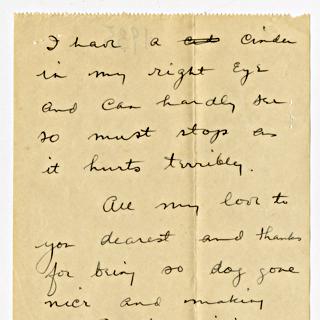 I have a cinder
in my right Eye
and can hardly see
so must stop as
it hurts terribly.
All my love to
you dearest and thanks
for being so dog gone
nice and making